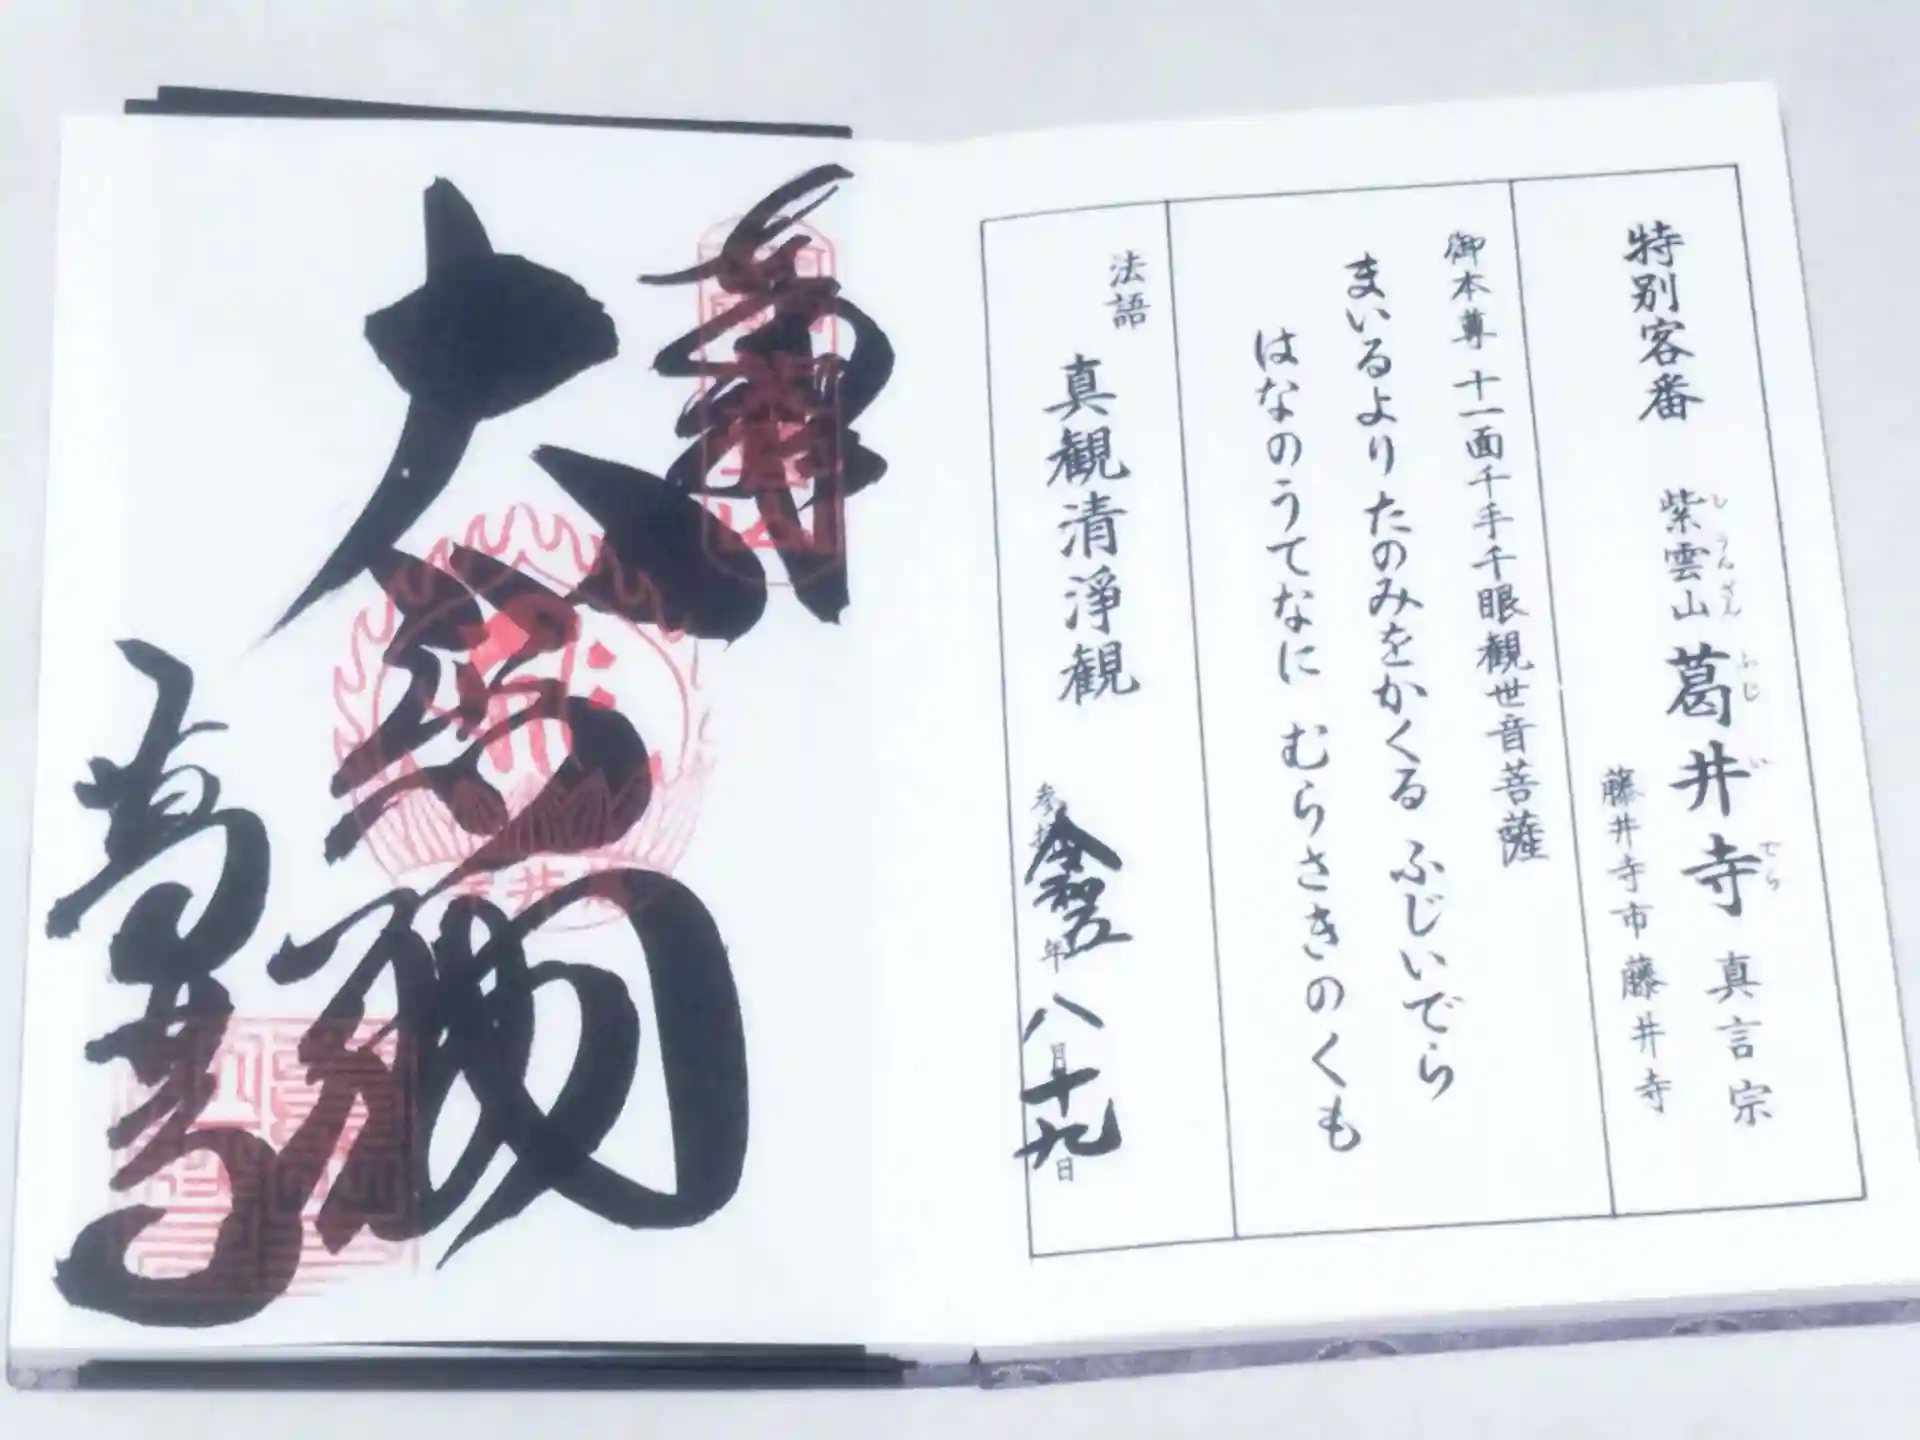 特別客番
紫雲山 葛井寺 真言宗
しうんざん ふじいでら
藤井寺市藤井寺
御本尊 十一面千手千眼観世音菩薩
まいるより たのみをかくる ふじいでら
はなのうてなに むらさきのくも
法語 真観清浄観
参拝 令和五年 八月十九日
奉拝
大悲閣
葛井寺